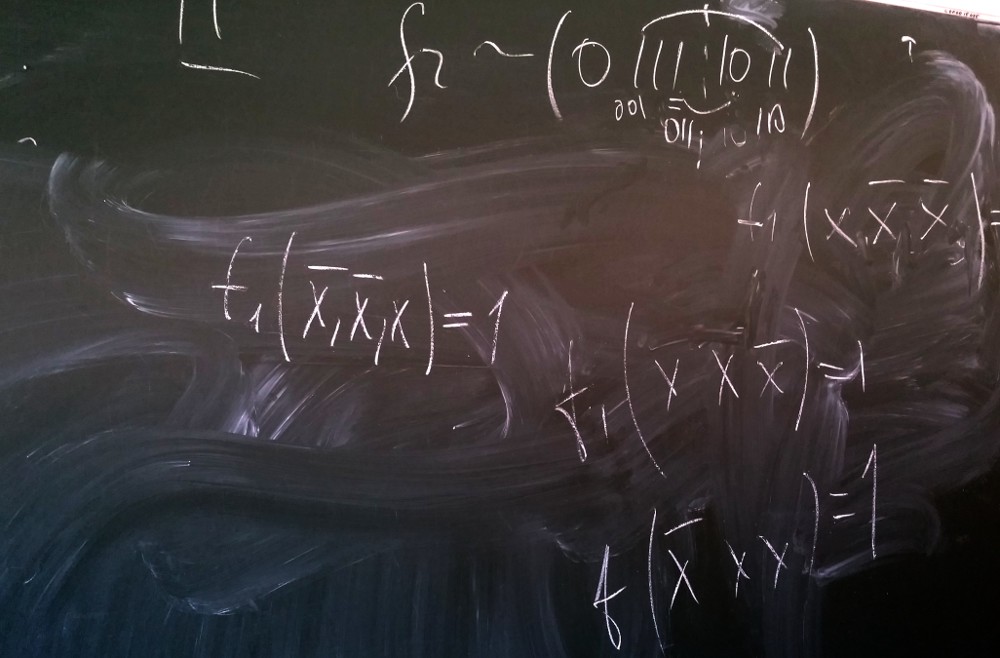 f₂ ~ (0 111 10 11)
001 = 011, 10 110
f₁ (x x̅ x̅) =
f₁ (x̅, x̅, x) = 1
f₁ (x x x̅) = 1
f (x̅ x x) = 1